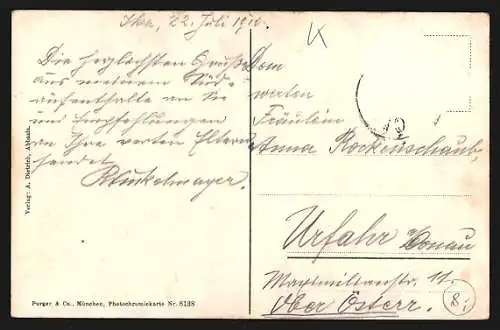 22. Juli 1910.
K
Die herzlichsten Grüße
aus meinem
aufenthalte an Sie
und Empfehlungen
an Ihre werten Eltern
sendet
Dem
werten
Fräulein
Anna Rockenschaub,
Urfahr Donau
11.
Ober Österr.
8.
Verlag: A. Dietrich,
Purger & Co., München, Photochromiekarte Nr. 8138